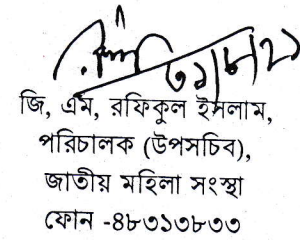 জি, এম, রফিকুল ইসলাম,
পরিচালক (উপসচিব),
জাতীয় মহিলা সংস্থা
ফোন -৪৮৩১৩৮৩৩